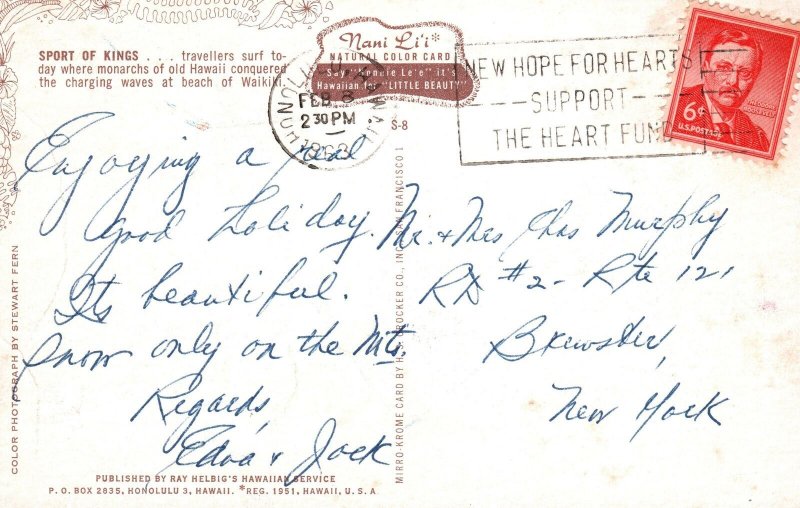 SPORT OF KINGS . . . travellers surf to-
day where monarchs of old Hawaii conquered
the charging waves at beach of Waikiki.
Nani Li'i*
NATURAL COLOR CARD
Say "Nannie Le'e" it's
Hawaiian for "LITTLE BEAUTY"
S-8
HONOLULU HAWAII
FEB 8
2 30 PM
NEW HOPE FOR HEARTS
SUPPORT
THE HEART FUND
6¢
U.S. POSTAGE
THEODORE ROOSEVELT
Enjoying a real
good holiday.
Its beautiful.
Snow only on the Mts.
Regards,
Edna & Jack
Mr. & Mrs Chas Murphy
RD #2 - Rte 121
Brewster,
New York
COLOR PHOTOGRAPH BY STEWART FERN
MIRRO-KROME CARD BY H. S. CROCKER CO., INC., SAN FRANCISCO 1
PUBLISHED BY RAY HELBIG'S HAWAIIAN SERVICE
P. O. BOX 2835, HONOLULU 3, HAWAII. *REG. 1951, HAWAII, U. S. A